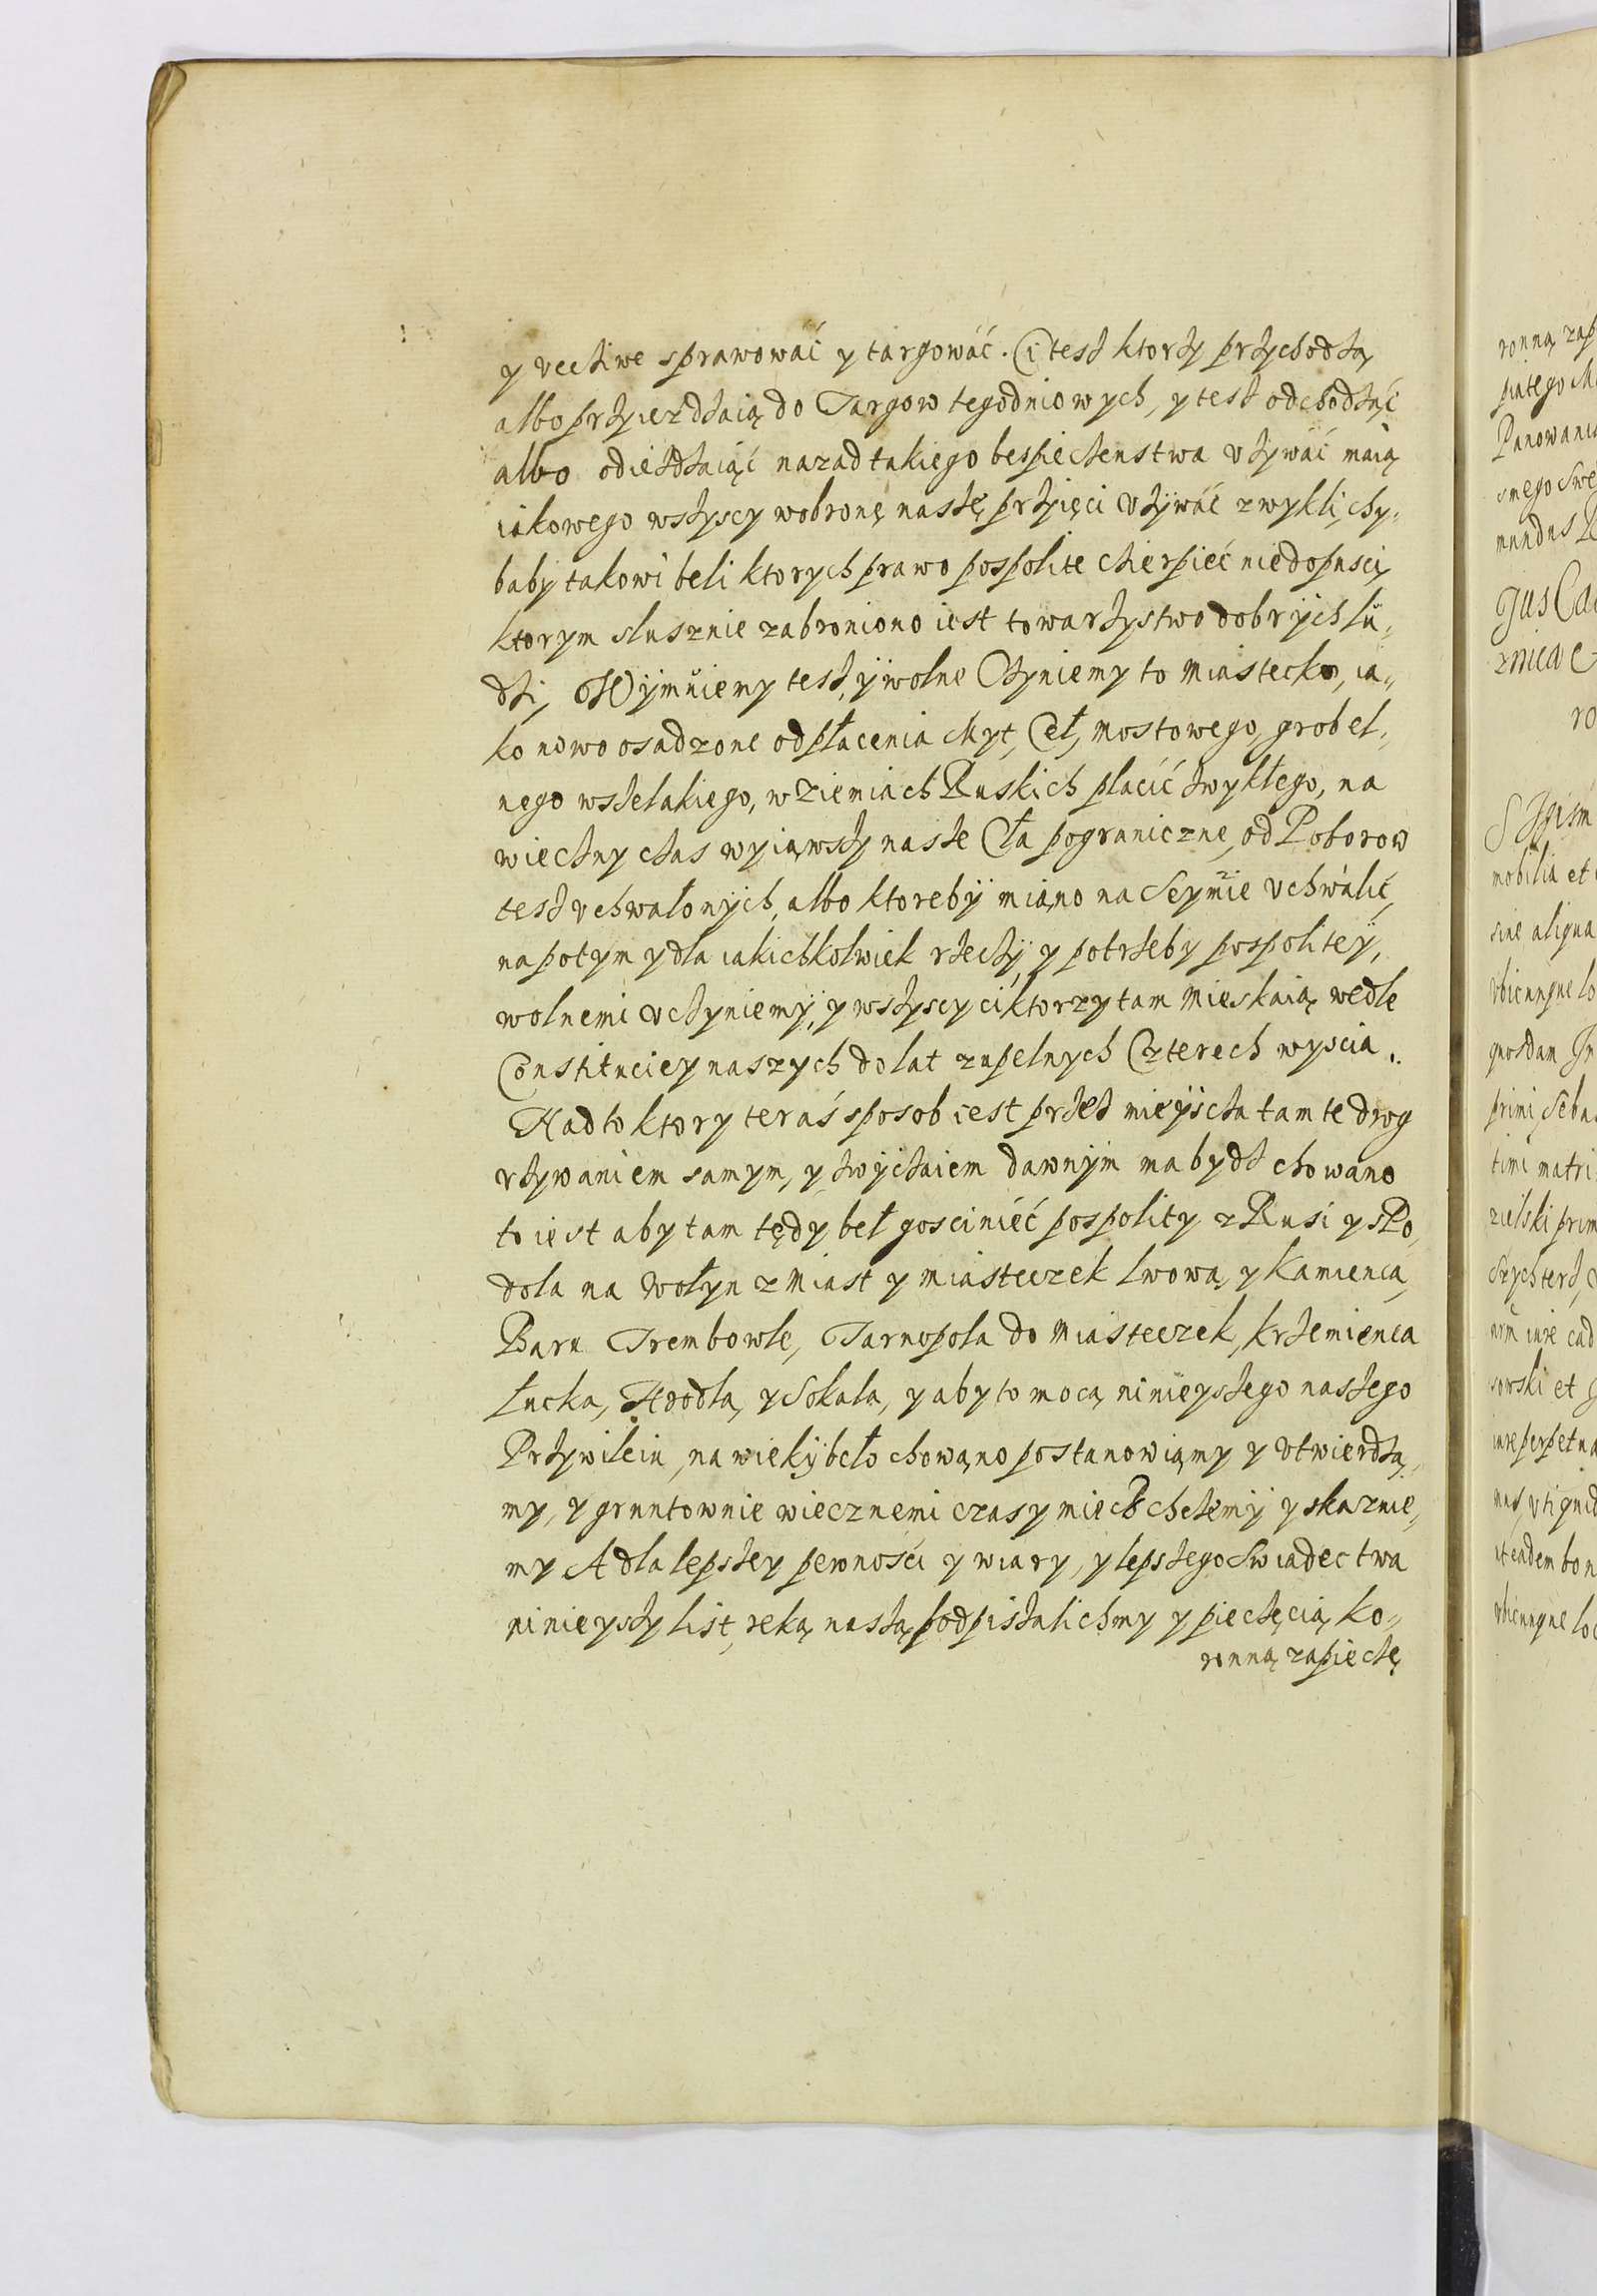 y vcciwe sprawować y targować. Ci tesz ktorzy przychodzą
albo przyiezdzaią do Targow tegodniowych, y tesz odchodząć
albo odieżdzaiąć nazad takiego bespieczenstwa vżywać maią
iakowego wszyscy wobronę naszę przyięci vżywać zwykli, chy„
baby takowi beli ktorych prawo pospolite cierpieć niedopusci,
ktorym slusznie zabroniono iest towarzystwo dobrych lu„
dzi, Wymuiemy tesz, y wolne Czyniemy to Miasteczko, ia„
ko nowo osadzone od płacenia Myt, Ceł, mostowego, grobel„
nego wszelakiego, w ziemiach Ruskich placić zwykłego, na
wieczny czas wyiąwszy nasze Cła pograniczne, od Poborow
tesz vchwalonych, albo ktoreby miano na Seymie vchwalić,
napotym y dla iakichkolwiek rzeczy y potrzeby pospolitey,
wolnemi vczyniemy, y wszyscy ci ktorzy tam Mieskaią wedle
Constituciey naszych do lat zupelnych Czterech wyscia.
Nadto ktory teraś sposob iest przez mieyscza tamte drog
vżywaniem samym, y zwyczaiem dawnym ma bydz chowano
to iest aby tam tędy beł gosciniéć pospolity z Rusi y s Po„
dola na Wołyn z Miast y miasteczek Lwowa, y Kamienca,
Baru Trembowle, Tarnopola do Miasteczek, Krzemienca
Łucka, Hrodła, y Sokala, y aby to mocą ninieyszego naszego
Przywileiu, na wieky beło chowano postanowiamy y vtwierdza„
my, y gruntownie wiecznemi czasy mieć chczemy y skazuie„
my A dla lepszey pewności y wiary, y lepszego Swiadectwa
ninieyszy list, reką naszą podpiszalichmy y pieczęcią ko„
ronną zapieczę